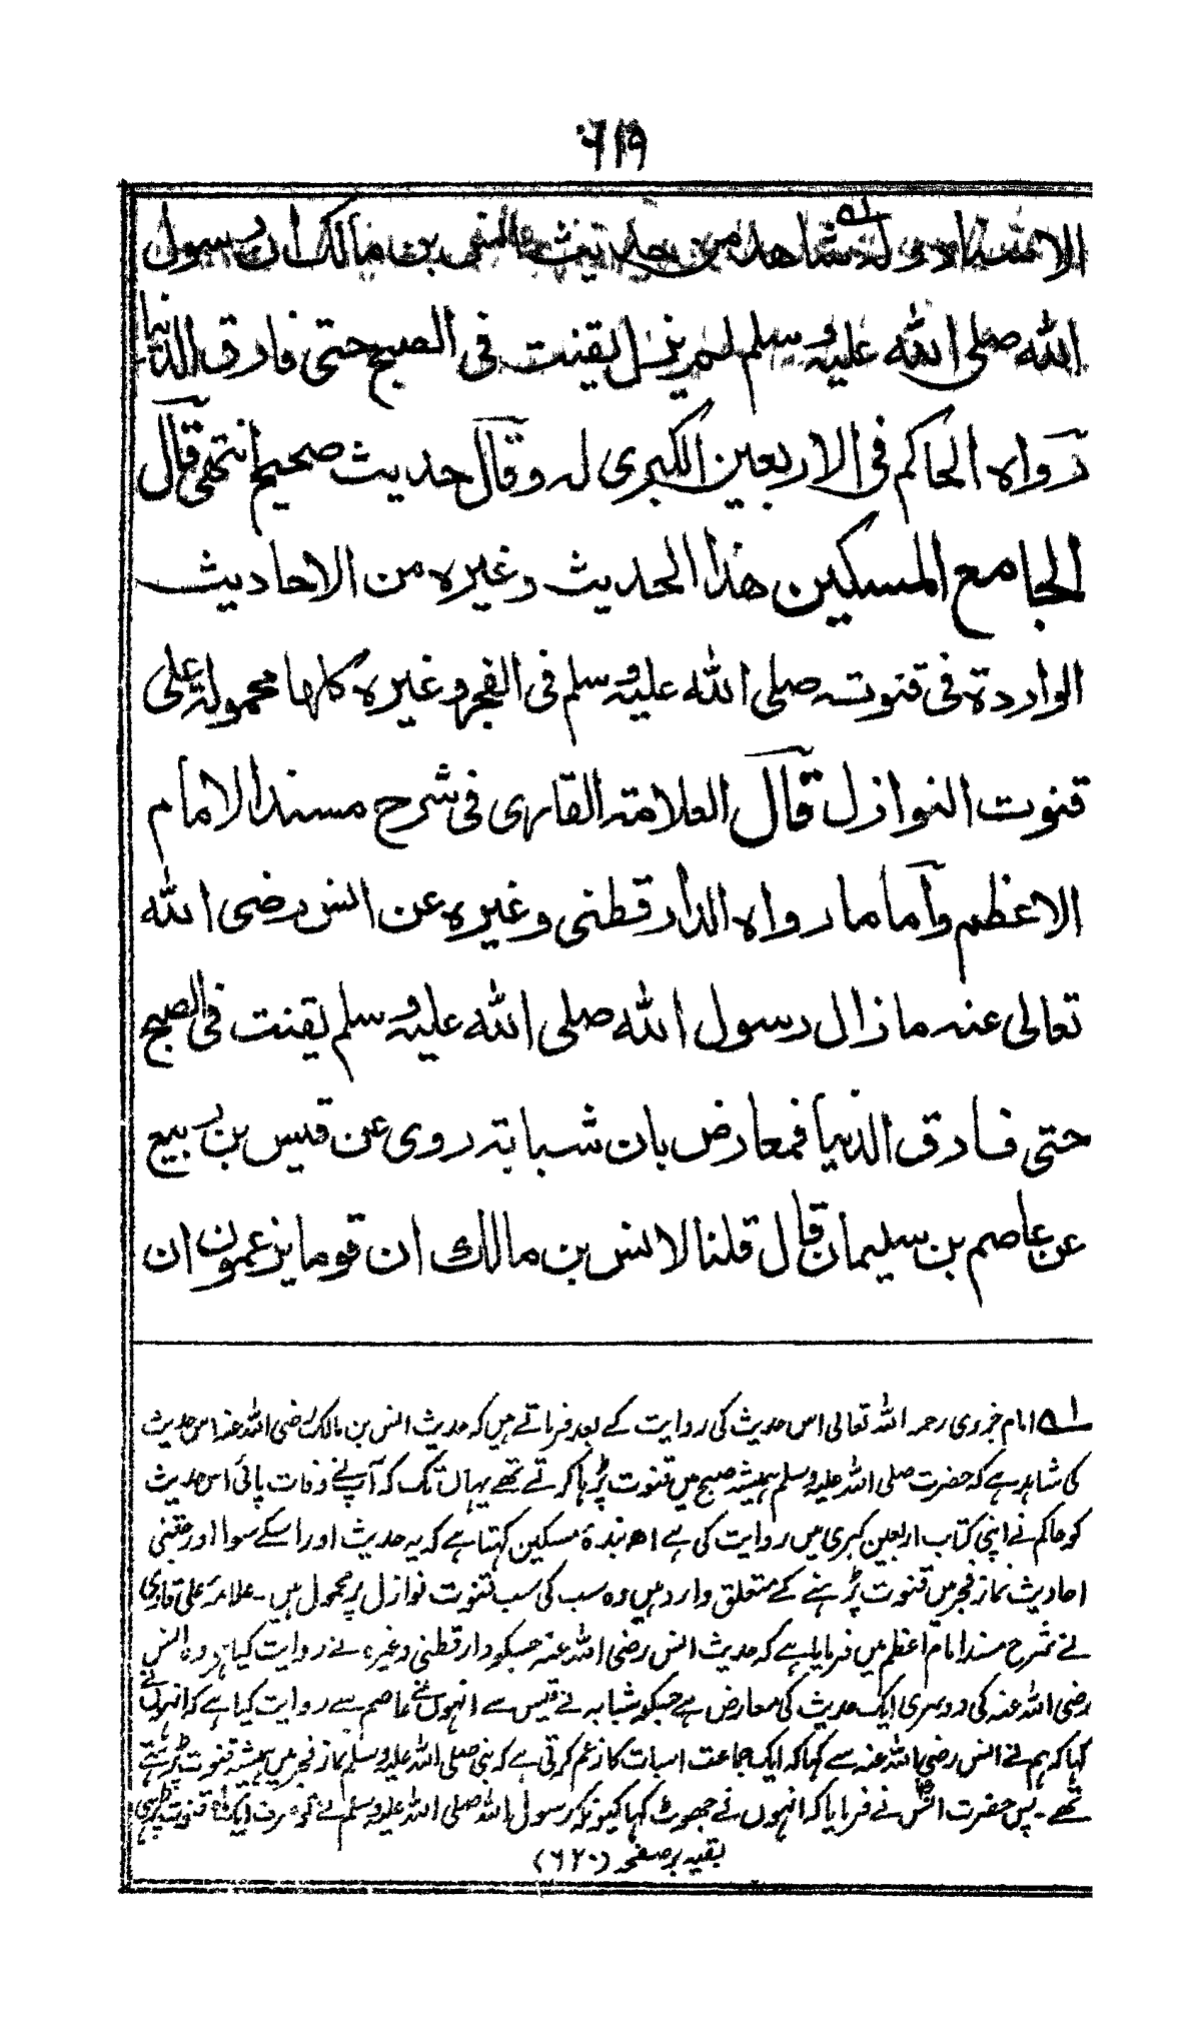 ٦١٩
الاسناد وله شاهد من حديث انس بن مالك ان رسول
الله صلى الله عليه وسلم لم يزل يقنت فى الصبح حتى فارق الدنيا
رواه الحاكم فى الاربعين الكبرى له وقال حديث صحيح انتهى قال
الجامع المسكين هذا الحديث وغيره من الاحاديث
الواردة فى قنوته صلى الله عليه وسلم فى الفجر وغيره كلها محمولة على
قنوت النوازل قال العلامة القارى فى شرح مسند الامام
الاعظم وأما ما رواه الدارقطنى وغيره عن انس رضى الله
تعالى عنه ما زال رسول الله صلى الله عليه وسلم يقنت فى الصبح
حتى فارق الدنيا فمعارض بان شبابة روى عن قيس بن ربيع
عن عاصم بن سليمان قال قلنا لانس بن مالك ان قوما يزعمون ان
لہ امام جزری رحمہ اللہ تعالی اس حدیث کی روایت کے بعد فرماتے ہیں کہ حدیث انس بن مالک رضی اللہ عنہ اس حدیث
کی شاہد ہے کہ حضرت صلی اللہ علیہ وسلم ہمیشہ صبح میں قنوت پڑہا کرتے تھے یہاں تک کہ آپنے وفات پائی اس حدیث
کو حاکم نے اپنی کتاب اربعین کبری میں روایت کی ہے اھ بندۂ مسکین کہتا ہے کہ یہ حدیث اور اسکے سوا اور جتنی
احادیث نماز فجر میں قنوت پڑہنے کے متعلق وارد ہیں وہ سب کی سب قنوت نوازل پر محمول ہیں۔ علامۂ علی قاری
نے شرح مسند امام اعظم میں فرمایا ہے کہ حدیث انس رضی اللہ عنہ جسکو دارقطنی وغیرہ نے روایت کیا ہے وہ انس
رضی اللہ عنہ کی دوسری ایک حدیث کی معارض ہے جسکو شبابہ نے قیس سے انہوں نے عاصم سے روایت کیا ہے کہ انہوں نے
کہا کہ ہم نے انس رضی اللہ عنہ سے کہا کہ ایک جماعت اسبات کا زعم کرتی ہے کہ نبی صلی اللہ علیہ وسلم نماز فجر میں ہمیشہ قنوت پڑہتے
تھے۔ پس حضرت انس نے فرمایا کہ انہوں نے جھوٹ کہا کیونکہ رسول اللہ صلی اللہ علیہ وسلم نے تو صرف ایک قنوت پڑہی
بقیہ بر صفحہ (٦٢٠)